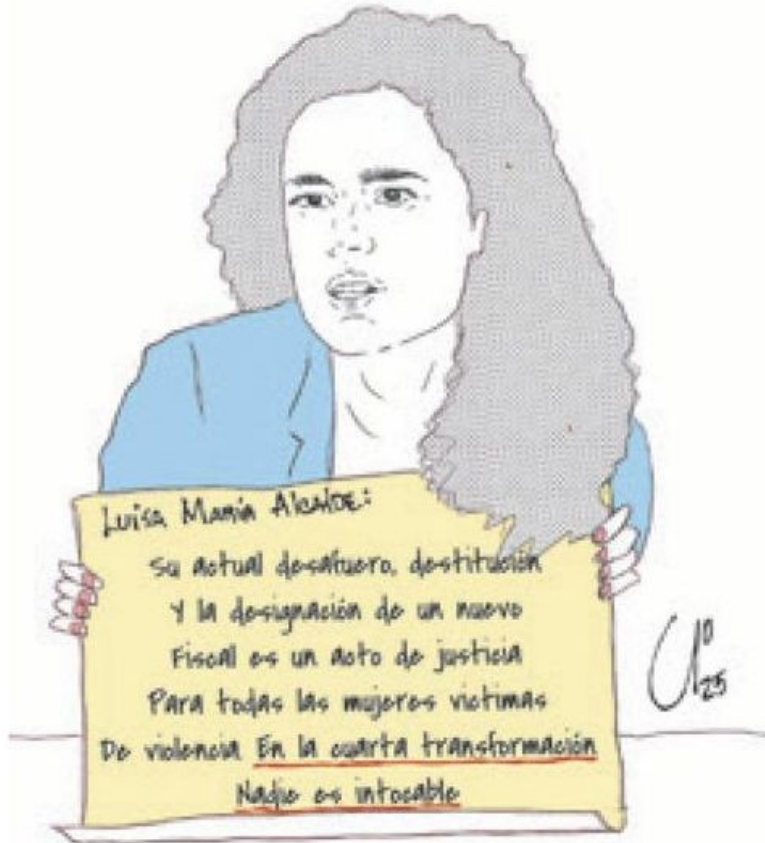 Luisa María Alcalde:
Su actual desafuero, destitución
Y la designación de un nuevo
Fiscal es un acto de justicia
Para todas las mujeres victimas
De violencia En la cuarta transformación
Nadie es intocable
25